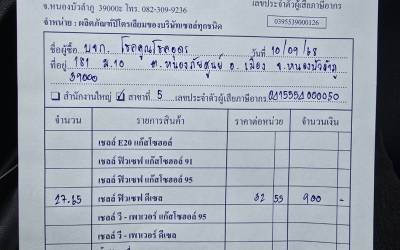 จ.หนองบัวลำภู 39000 โทร. 082-309-9236
เลขประจำตัวผู้เสียภาษีอากร
จำหน่าย : ผลิตภัณฑ์ปิโตรเลียมของบริษัทเชลล์ทุกชนิด
0395539000126
ชื่อผู้ซื้อ บจก. โชคคูณโชคอุดร วันที่ 10/09/68
ที่อยู่ 181 ม.10 ต.หนองภัยศูนย์ อ.เมือง จ.หนองบัวลำภู
39000
สำนักงานใหญ่ สาขาที่ 5 เลขประจำตัวผู้เสียภาษีอากร
จำนวน รายการสินค้า ราคาต่อหน่วย จำนวนเงิน
เชลล์ E20 แก๊สโซฮอล์
เชลล์ ฟิวเซฟ แก๊สโซฮอล์ 91
เชลล์ ฟิวเซฟ แก๊สโซฮอล์ 95
27.65 เชลล์ ฟิวเซฟ ดีเซล 32 55 900 -
เชลล์ วี - เพาเวอร์ แก๊สโซฮอล์ 95
เชลล์ วี - เพาเวอร์ ดีเซล